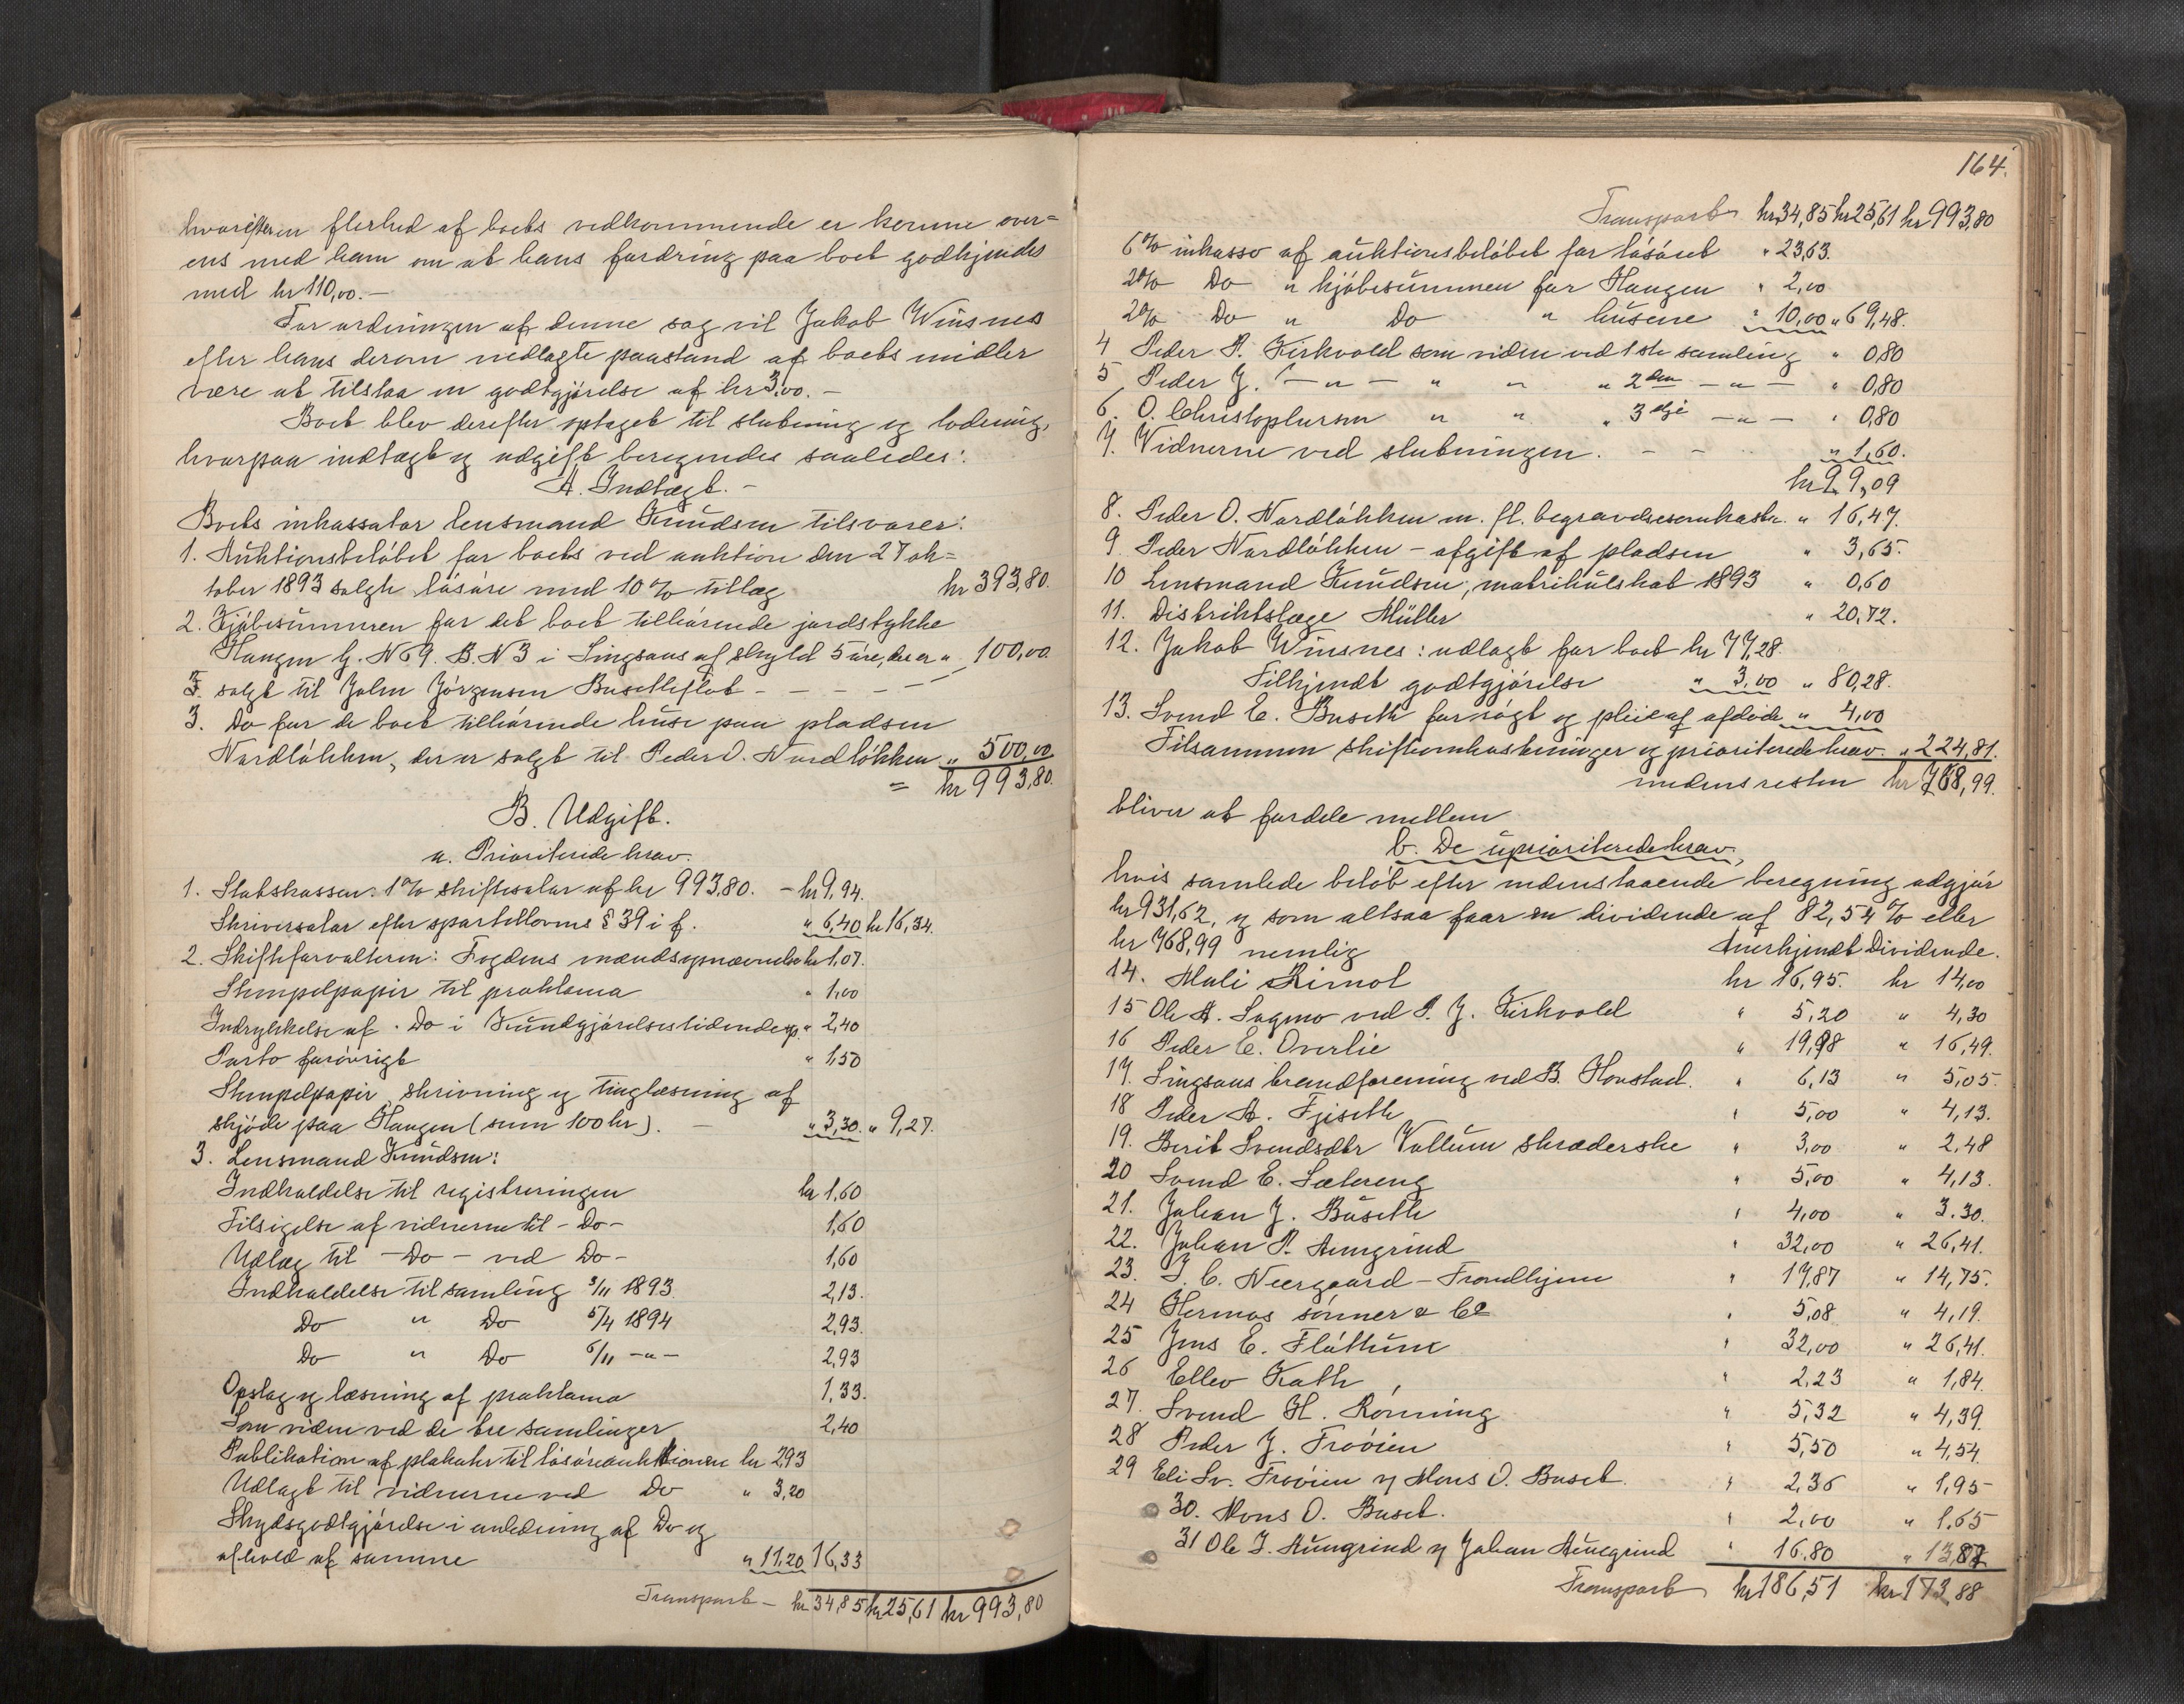 hvorefter en flerhed af boets vedkommende er komne over=
ens med ham om at hans fordring paa boet godkjendes
med kr 110,00. –
For ordningen af denne sag vil Jakob Winsnes
efter hans derom nedlagte paastand af boets midler
være at tilstaa en godtgjörelse af kr 3,00. –
Boet blev derefter optaget til slutning og lodning,
hvorpaa indtægt og udgift beregnedes saaledes:
A. Indtægt. –
Boets inkassator lensmand Knudsen tilsvarer:
1. Auktionsbelöbet for boets ved auktion den 27 ok=
tober 1893 solgte lösöre med 10 % tillæg kr 393,80.
2. Kjöbesummen for det boet tilhörende jordstykke
Haugen G. No 9. B. No 3 i Singsaas af skyld 5 öre, der er " 100,00.
solgt til John Jörgensen Busetheflot – – – – –
3. Do for de boet tilhörende huse paa pladsen
Nordlökken, der er solgt til Peder O. Nordlökken " 500,00
= kr 993,80.
B. Udgift.
a. Prioriterede krav.
1. Statskassen: 1 % skiftesalar af kr 993,80. – kr 9,94.
Skriversalar efter sportellovens § 39 i f. " 6,40 kr 16,34.
2. Skifteforvalteren: Fogdens mændsopnævnelse kr 1,07.
Stempelpapir til proklama " 1,00
Indrykkelse af Do i Kundgjörelsestidende " 2,40
Porto forövrigt " 1,50
Stempelpapir, skrivning og tinglæsning af
skjöde paa Haugen (sum 100 kr). – " 3,30. " 9,27.
3. Lensmand Knudsen:
Indkaldelse til registreringen kr 1,60
Tilsigelse af vidnerne til – Do – 1,60
Udlæg til – Do – ved Do – 1,60
Indkaldelse til samling 3/11 1893. 2,13.
Do " Do 5/4 1894 2,93.
Do " Do 6/11 – " – 2,93
Opslag og læsning af proklama 1,33.
Som vidne ved de tre samlinger 2,40
Publikation af plakater til lösöreauktionen kr 2,93
Udlagt til vidnerne ved Do " 3,20
Skydsgodtgjörelse i anledning af Do og
afhold af samme " 11,20 16,33
Transport – kr 34,85 kr 25,61 kr 993,80
164.
Transport kr 34,85 kr 25,61 kr 993,80
6 % inkasso af auktionsbelöbet for lösöret " 23,63.
2 % Do " kjöbesummen for Haugen " 2,00
2 % Do " Do " husene " 10,00 " 69,48.
4 Peder P. Kirkvold som vidne ved 1ste samling " 0,80
5. Peder J. – " – " " " 2den – " – " 0,80
6. O. Christophersen " " " 3die – " – " 0,80
7. Vidnerne ved slutningen. – – " 1,60.
kr 99,09
8. Peder O. Nordlökken m. fl. begravelsesomkostn. " 16,47.
9 Peder Nordlökken – afgift af pladsen " 3,65.
10 Lensmand Knudsen, matrikulskat 1893 " 0,60
11. Distriktslæge Müller " 20,72.
12. Jakob Winsnes: udlagt for boet kr 77,28.
Tilkjendt godtgjörelse " 3,00 " 80,28.
13. Svend E. Buseth for rögt og pleie af afdöde " 4,00
Tilsammen skifteomkostninger og prioriterede krav. " 224,81.
medens resten kr 768,99.
bliver at fordele mellem
b. De uprioriterede krav,
hvis samlede belöb efter nedenstaaende beregning udgjör
kr 931,62, og som altsaa faar en dividende af 82,54 % eller
kr 768,99 nemlig Anerkjendt Dividende.
14. Mali Rimol kr 16,95. kr 14,00
15 Ole A. Sagmo ved P. J. Kirkvold " 5,20 " 4,30
16 Peder E. Överlie " 19,98 " 16,49.
17. Singsaas brandforening ved B. Hovstad. " 6,13 " 5,05.
18 Peder A. Fjiseth " 5,00 " 4,13.
19. Berit Svendsdtr Vollum skræderske " 3,00 " 2,48
20 Svend E. Sætereng " 5,00 " 4,13.
21. Johan J. Buseth " 4,00 " 3.30.
22. Johan P. Aungrind " 32,00 " 26,41.
23. J. C. Neergaard – Trondhjem " 17,87 " 14,75.
24 Hermos sönner & Co " 5,08 " 4,19.
25 Jens E. Flöttum " 32,00 " 26,41.
26 Ellev Kath " 2,23 " 1,84.
27. Svend H. Rönning " 5,32 " 4,39.
28 Peder J. Fröøien " 5,50 " 4,54
29 Eli Sv. Frøøien og Mons O. Buset. " 2,36 " 1,95
30. Mons O. Buset. " 2,00 " 1,65
31 Ole J. Aungrind og Johan Aungrind " 16.80 " 13,87
Transport kr 186,51 kr 173,88